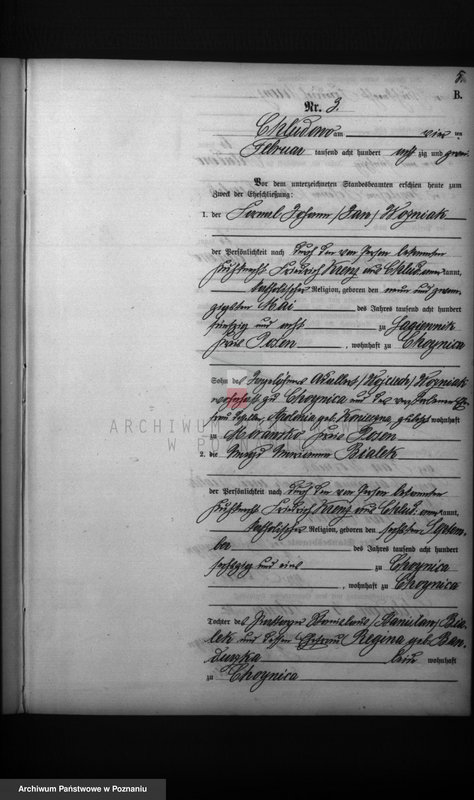 5.
B.
Nr. 3.
Chludowo am vier ten
Februar tausend acht hundert acht zig und zwei
Vor dem unterzeichneten Standesbeamten erschien heute zum
Zweck der Eheschließung:
1. der Johann /Jan/ Woyniak
der Persönlichkeit nach durch den von Person bekannten
Friedrich Krenz aus Chludowo kannt,
katholischer Religion, geboren den neun und zwan-
zigsten Mai des Jahres tausend acht hundert
fünfzig und acht zu
Kreis Posen, wohnhaft zu Choynica
Sohn des Tagelöhners Adalbert /Wojciech/ Woyniak
wohnhaft zu Choynica und der verstorbenen
Apolonia geb. wohnhaft
zu Morawsko Kreis Posen
2. die Magd Marianna Bialek
der Persönlichkeit nach durch den von Person bekannten
Friedrich Krenz aus Chludowo kannt,
katholischer Religion, geboren den sechsten Septem-
ber des Jahres tausend acht hundert
sechszig und eins zu Choynica
, wohnhaft zu Choynica
Tochter des Stanislaus /Stanislaw/ Bia-
lek und dessen Ehefrau Regina geb. Ban-
wohnhaft
zu Choynica
ARCHIWUM PAŃSTWOWE
W POZNANIU
Archiwum Państwowe w Poznaniu